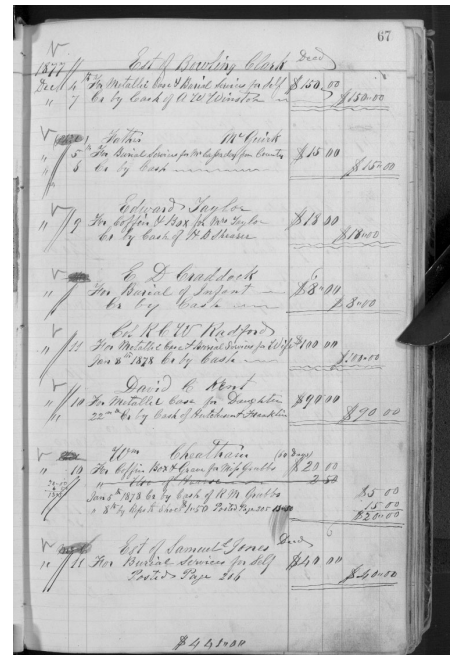 67
Est of Bowling Clark Decd
1877
Dec 4 For Metallic Case & Burial Servises for Self $150.00
" 7 Cr by Cash of A W Winston $150.00
Father McGurk
" 5 For Burial Servises for from County $15 00
" 5 Cr by Cash $15.00
Edward Taylor
" 9 For Coffin & Box for Mrs Taylor $18 00
Cr by Cash of H D $18.00
C D Craddock
For Burial of Infant $8.00
Cr by Cash $8.00
R C W Radford
" 11 For Metallic Case & Burial Servises for Wife $100.00
Jan 8th 1878 Cr by Cash $100.00
David C Kent
" 10 For Metallic Case for Daughter $90 00
" 22nd Cr by Cash of Hutcheson Franklin $90.00
Cheatham (10 Days)
" 10 For Coffin Box & Grave for Miss Grubbs $20 00
" Hire of Hearse 2 50
Jan 5th 1878 Cr by Cash of R M Grubbs $5 00
" 8th by Posted Page 205 15 00
$20.00
Est of Samuel Jones Decd
" 11 For Burial Services for Self $40 00
Posted Page 206 $40.00
$441.00